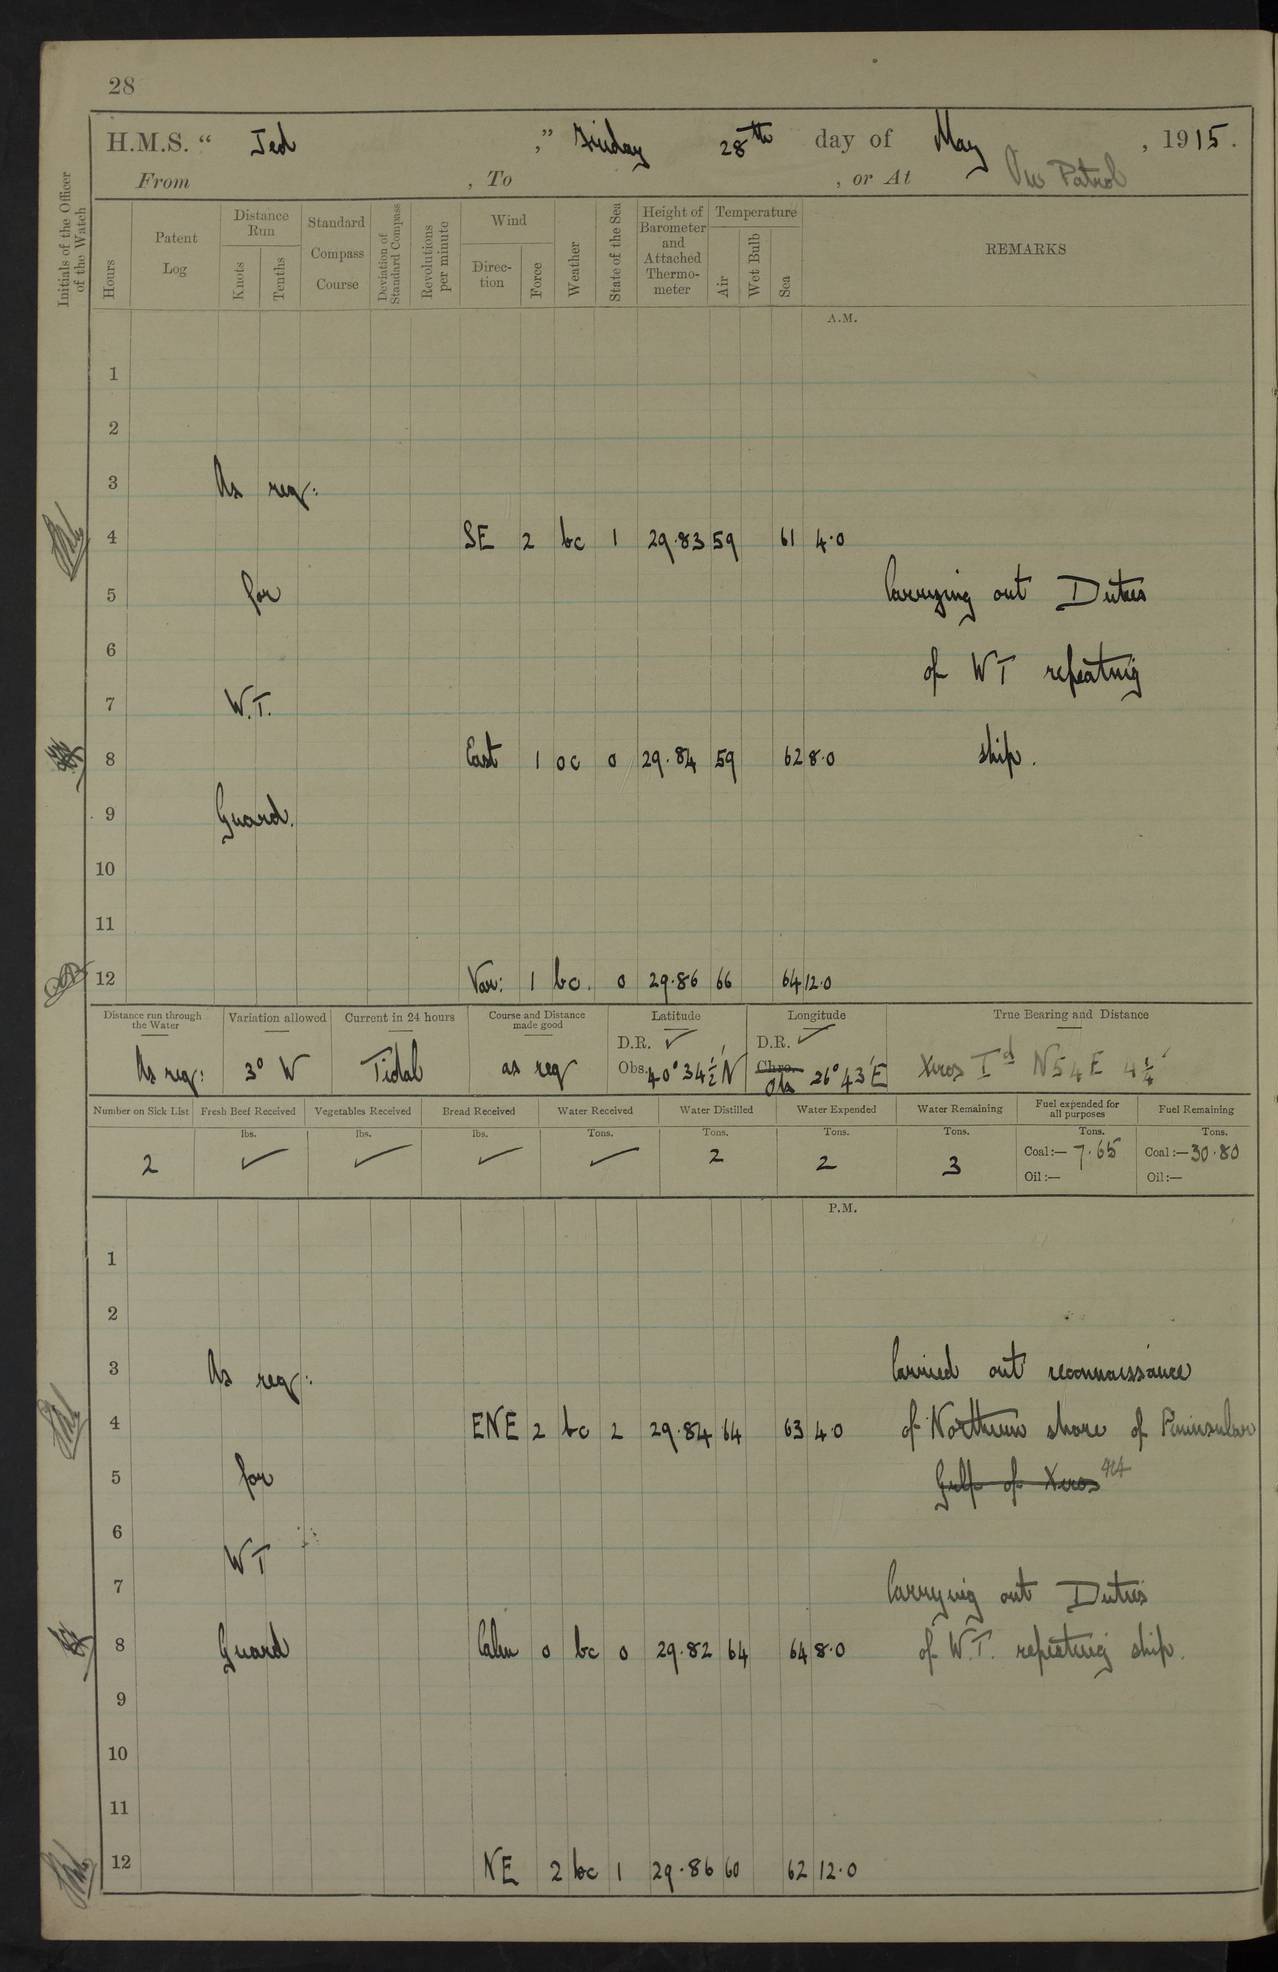 28
H.M.S. “ Jed ,” Friday 28th day of May , 1915.
From , To , or At On Patrol
Initials of the Officer of the Watch
Hours
Patent Log
Distance Run
Knots
Tenths
Standard Compass Course
Deviation of Standard Compass
Revolutions per minute
Wind
Direc-tion
Force
Weather
State of the Sea
Height of Barometer and Attached Thermo-meter
Temperature
Air
Wet Bulb
Sea
REMARKS
A.M.
1
2
3 As req:
4 SE 2 bc 1 29.83 59 61 4.0
5 for Carrying out Duties
6 of WT repeating
7 W.T.
8 East 1 oc 0 29.84 59 62 8.0 ship.
9 Guard.
10
11
12 Var: 1 bc. 0 29.86 66 64 12.0
Distance run through the Water
Variation allowed
Current in 24 hours
Course and Distance made good
Latitude
Longitude
True Bearing and Distance
D.R. ✓ D.R. ✓
As req: 3° W Tidal as req Obs. 40° 34½' N Chro. Obs 26° 43' E Xeros Id N54E 4¼'
Number on Sick List
Fresh Beef Received
Vegetables Received
Bread Received
Water Received
Water Distilled
Water Expended
Water Remaining
Fuel expended for all purposes
Fuel Remaining
lbs. lbs. lbs. Tons. Tons. Tons. Tons. Tons. Tons.
2 ✓ ✓ ✓ ✓ 2 2 3 Coal:— 7.65 Coal:— 30.80
Oil:— Oil:—
P.M.
1
2
3 As req: Carried out reconnaissance
4 ENE 2 bc 2 29.84 64 63 4.0 of Northern shore of Peninsular
5 for Gulf of Xeros
6 WT
7 Carrying out Duties
8 Guard Calm 0 bc 0 29.82 64 64 8.0 of W.T. repeating ship.
9
10
11
12 NE 2 bc 1 29.86 60 62 12.0